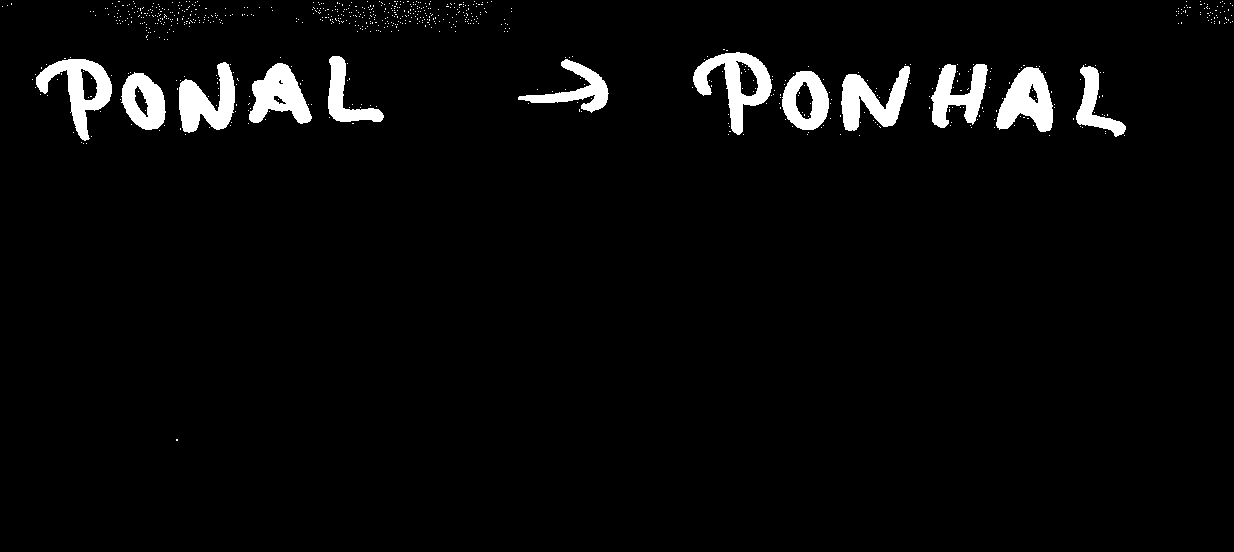 PONAL → PONHAL